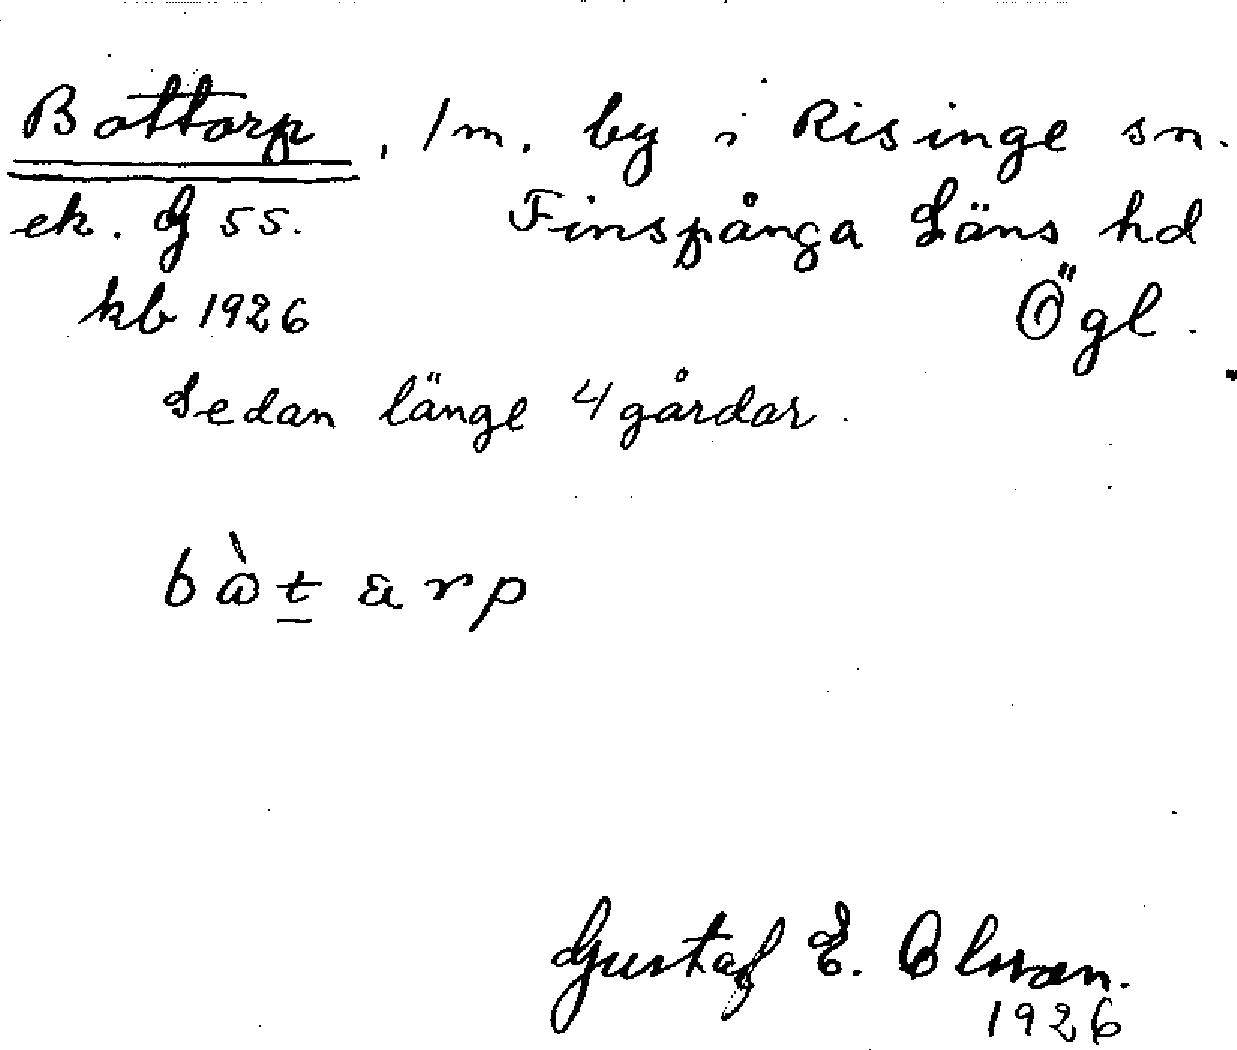 Bottorp, 1 m. by i Risinge sn.
ek. G 55. Finspånga Läns hd
kb 1926 Ögl.
Sedan länge 4 gårdar.
bàt̲arp
Gustaf E. Olsson.
1926